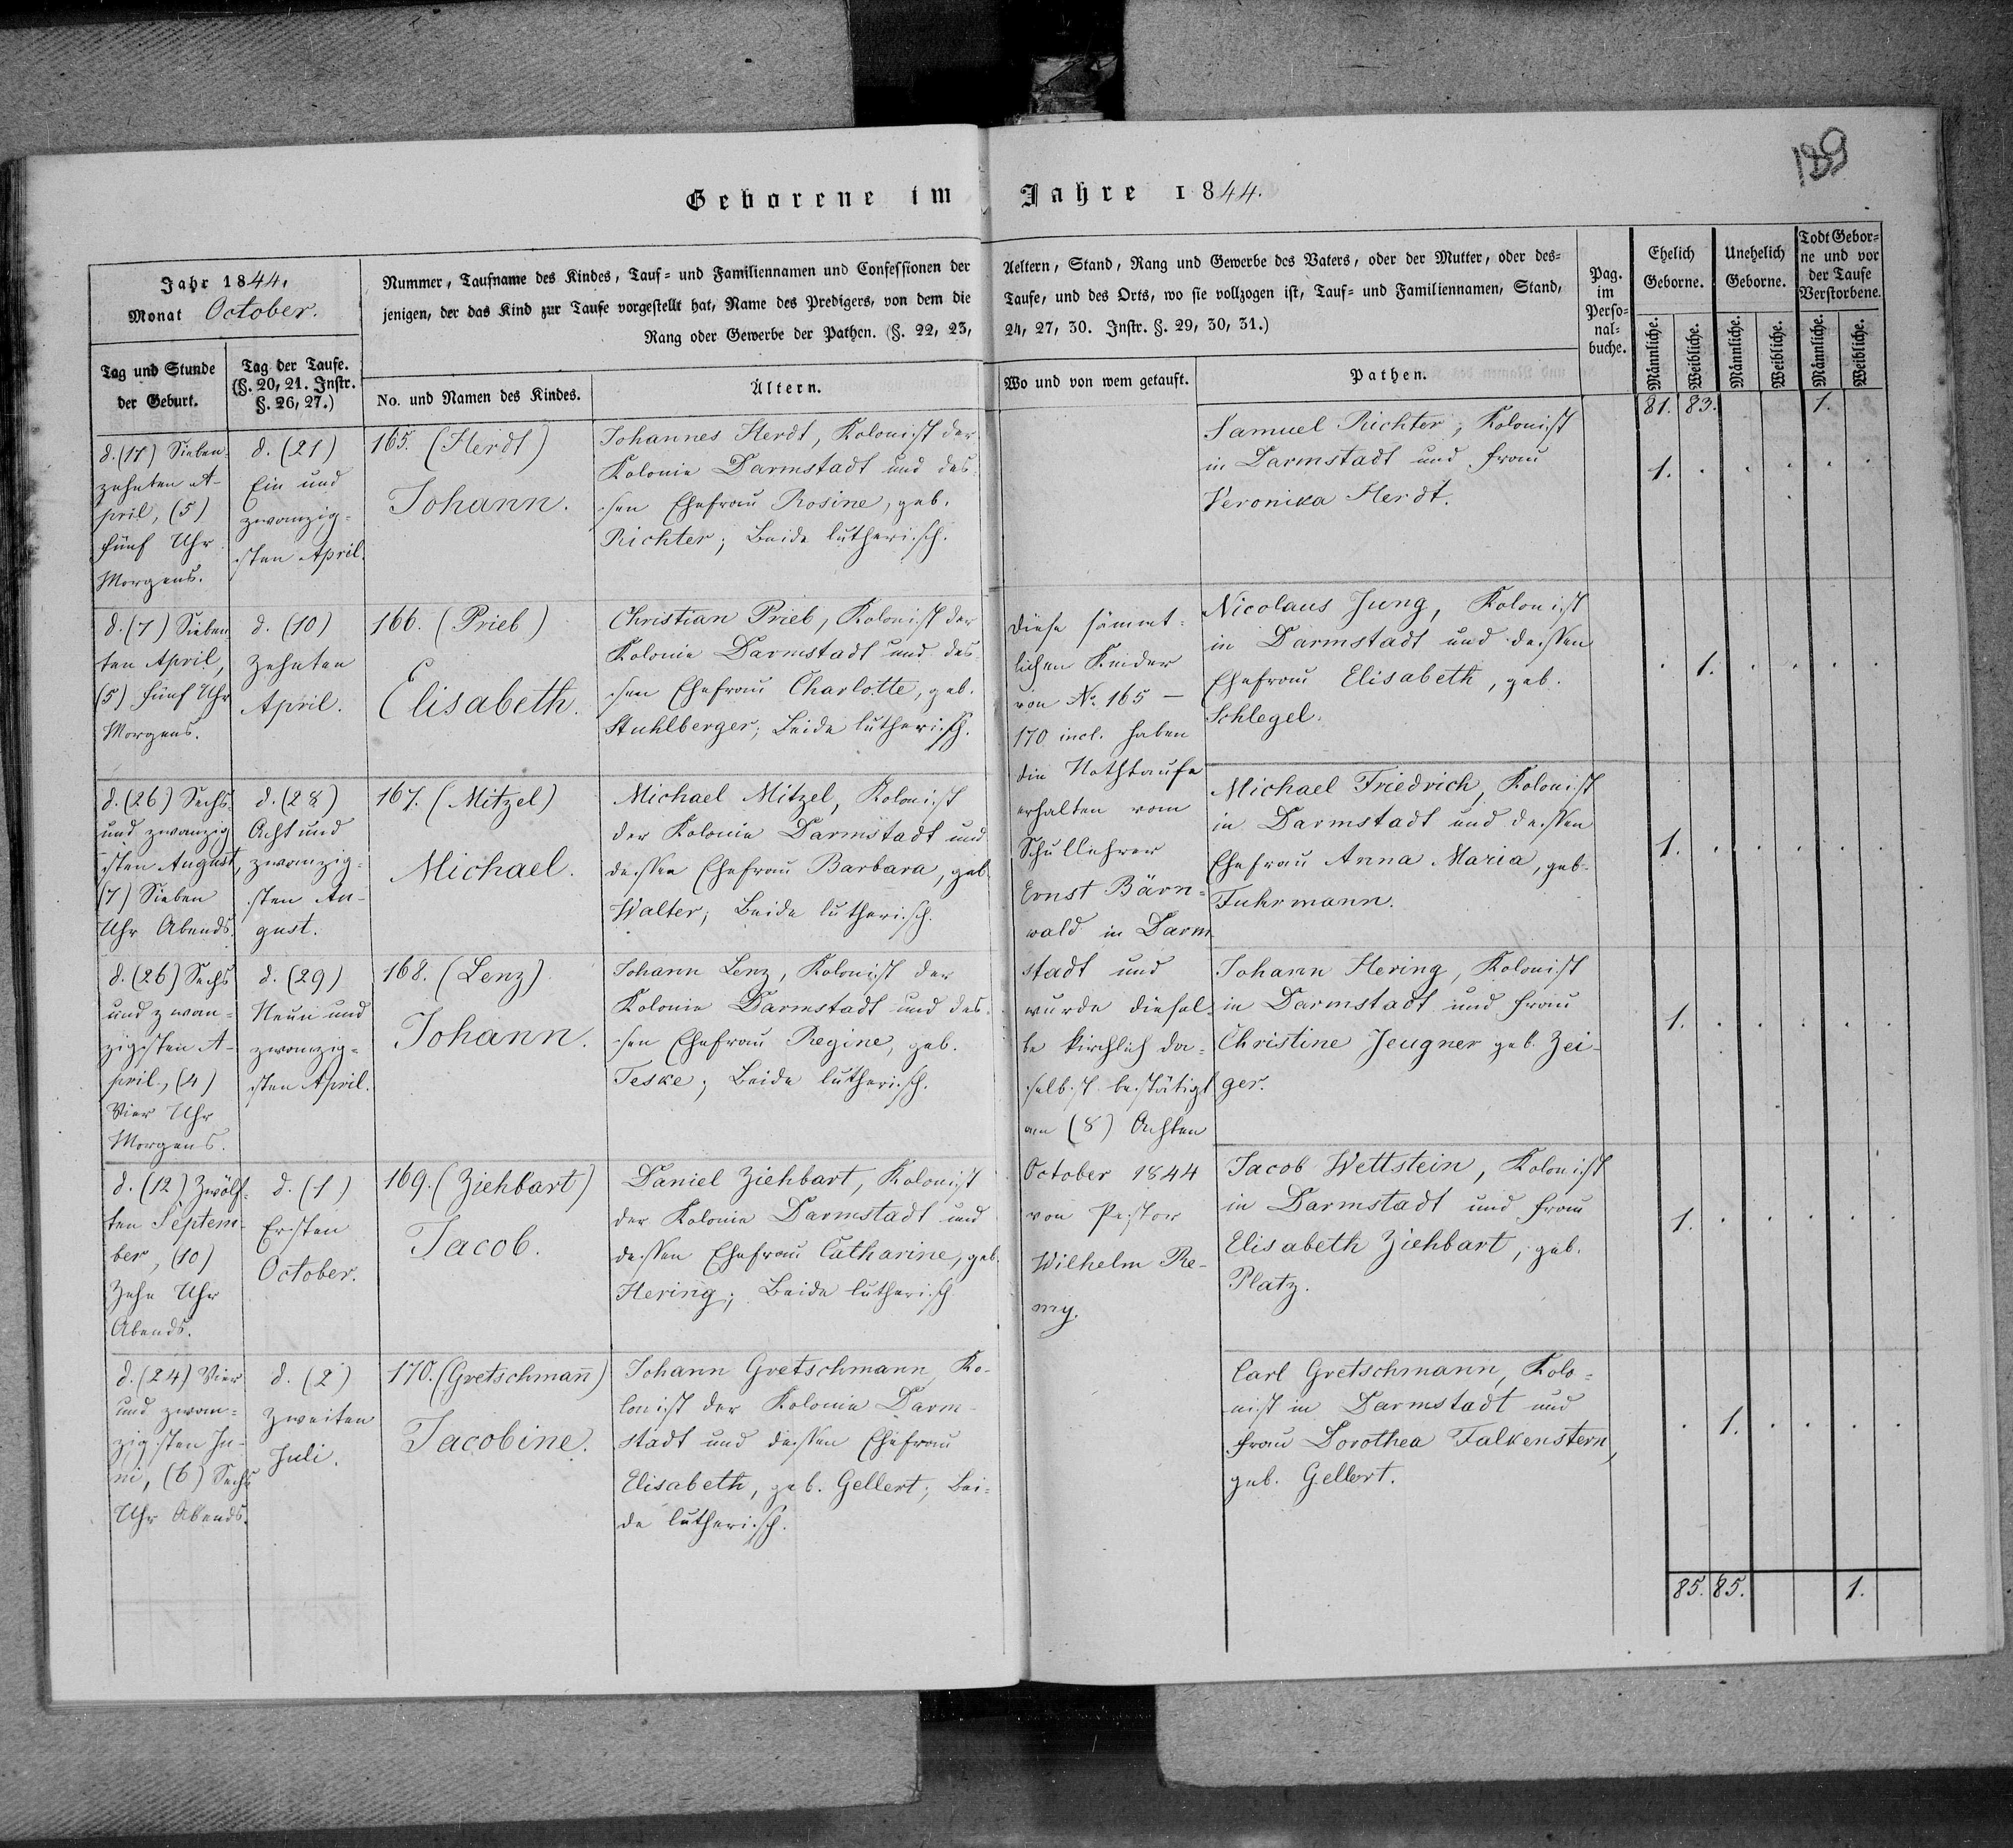 189
Geborene im Jahre 1844.
Jahr 1844.
Monat October.
Nummer, Taufname des Kindes, Tauf= und Familiennamen und Confessionen der
Aeltern, Stand, Rang und Gewerbe des Vaters, oder der Mutter, oder des=
jenigen, der das Kind zur Taufe vorgestellt hat, Name des Predigers, von dem die
Taufe, und des Orts, wo sie vollzogen ist, Tauf= und Familiennamen, Stand,
Rang oder Gewerbe der Pathen. (§. 22, 23,
24, 27, 30. Instr. §. 29, 30, 31.)
Pag.
im
Perso=
nal=
buche.
Ehelich
Geborne.
Unehelich
Geborne.
Todt Gebor=
ne und vor
der Taufe
Verstorbene.
Männliche.
Weibliche.
Männliche.
Weibliche.
Männliche.
Weibliche.
Tag und Stunde
der Geburt.
Tag der Taufe.
(§. 20, 21. Instr.
§. 26, 27.)
No. und Namen des Kindes.
Ältern.
Wo und von wem getauft.
Pathen.
81. 83. 1.
d. (17) Sieben-
zehnten A-
pril, (5)
fünf Uhr
Morgens.
d. (21)
Ein und
zwanzig=
sten April.
165. (Herdt)
Johann.
Johannes Herdt, Kolonist der
Kolonie Darmstadt und des-
sen Ehefrau Rosine, geb.
Richter; Beide lutherisch.
Samuel Richter, Kolonist
in Darmstadt und Frau
Veronika Herdt.
1.
d. (7) Sieben
ten April,
(5) fünf Uhr
Morgens.
d. (10)
Zehnten
April.
166. (Prieb)
Elisabeth.
Christian Prieb, Kolonist der
Kolonie Darmstadt und des
sen Ehefrau Charlotte, geb.
Stuhlberger; Beide lutherisch.
Diese sämmt=
lichen Kinder
von No. 165 —
170 incl. haben
die Nothtaufe
erhalten vom
Schullehrer
Ernst Bärn=
wald in Darm
stadt und
wurde diesel=
be kirchlich da=
selbst bestätigt
am (8) Achten
October 1844
von Pastor
Wilhelm Re-
my.
Nicolaus Jung, Kolonist
in Darmstadt und dessen
Ehefrau Elisabeth, geb.
Schlegel.
1.
d. (26) Sechs
und zwanzig
sten August,
(7) Sieben
Uhr Abends.
d. (28)
Acht und
zwanzig=
sten Au-
gust.
167. (Mitzel)
Michael.
Michael Mitzel, Kolonist
der Kolonie Darmstadt und
dessen Ehefrau Barbara, geb.
Walter; Beide lutherisch.
Michael Friedrich, Kolonist
in Darmstadt und dessen
Ehefrau Anna Maria, geb.
Fuhrmann.
1.
d. (26) Sechs
und zwan=
zigsten A-
pril, (4)
Vier Uhr
Morgens.
d. (29)
Neun und
zwanzig=
sten April.
168. (Lenz)
Johann.
Johann Lenz, Kolonist der
Kolonie Darmstadt und des
sen Ehefrau Regine, geb.
Teske; Beide lutherisch.
Johann Hering, Kolonist
in Darmstadt und Frau
Christine Jeugner geb. Zei-
ger.
1.
d. (12) Zwölf-
ten Septem-
ber, (10)
Zehn Uhr
Abends.
d. (1)
Ersten
October.
169. (Ziehbart)
Jacob.
Daniel Ziehbart, Kolonist
der Kolonie Darmstadt und
dessen Ehefrau Catharine, geb.
Hering; Beide lutherisch
Jacob Wettstein, Kolonist
in Darmstadt und Frau
Elisabeth Ziehbart, geb.
Platz.
1.
d. (24) Vier
und zwan=
zigsten Ju-
ni, (6) Sechs
Uhr Abends.
d. (2)
Zweiten
Juli.
170. (Gretschman̄)
Jacobine.
Johann Gretschmann, Ko-
lonist der Kolonie Darm-
stadt und dessen Ehefrau
Elisabeth, geb. Gellert; Bei=
de lutherisch.
Carl Gretschmann, Kolo=
nist in Darmstadt und
Frau Dorothea Falkenstern,
geb. Gellert.
1.
85. 85. 1.